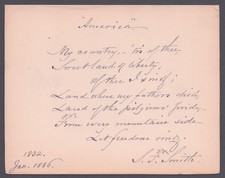 "America"
My country, 'tis of thee
Sweet land of liberty,
Of thee I sing;
Land where my fathers died,
Land of the pilgrims' pride,
From every mountain side
Let freedom ring.
S. F. Smith.
1832.
Jan. 1886.